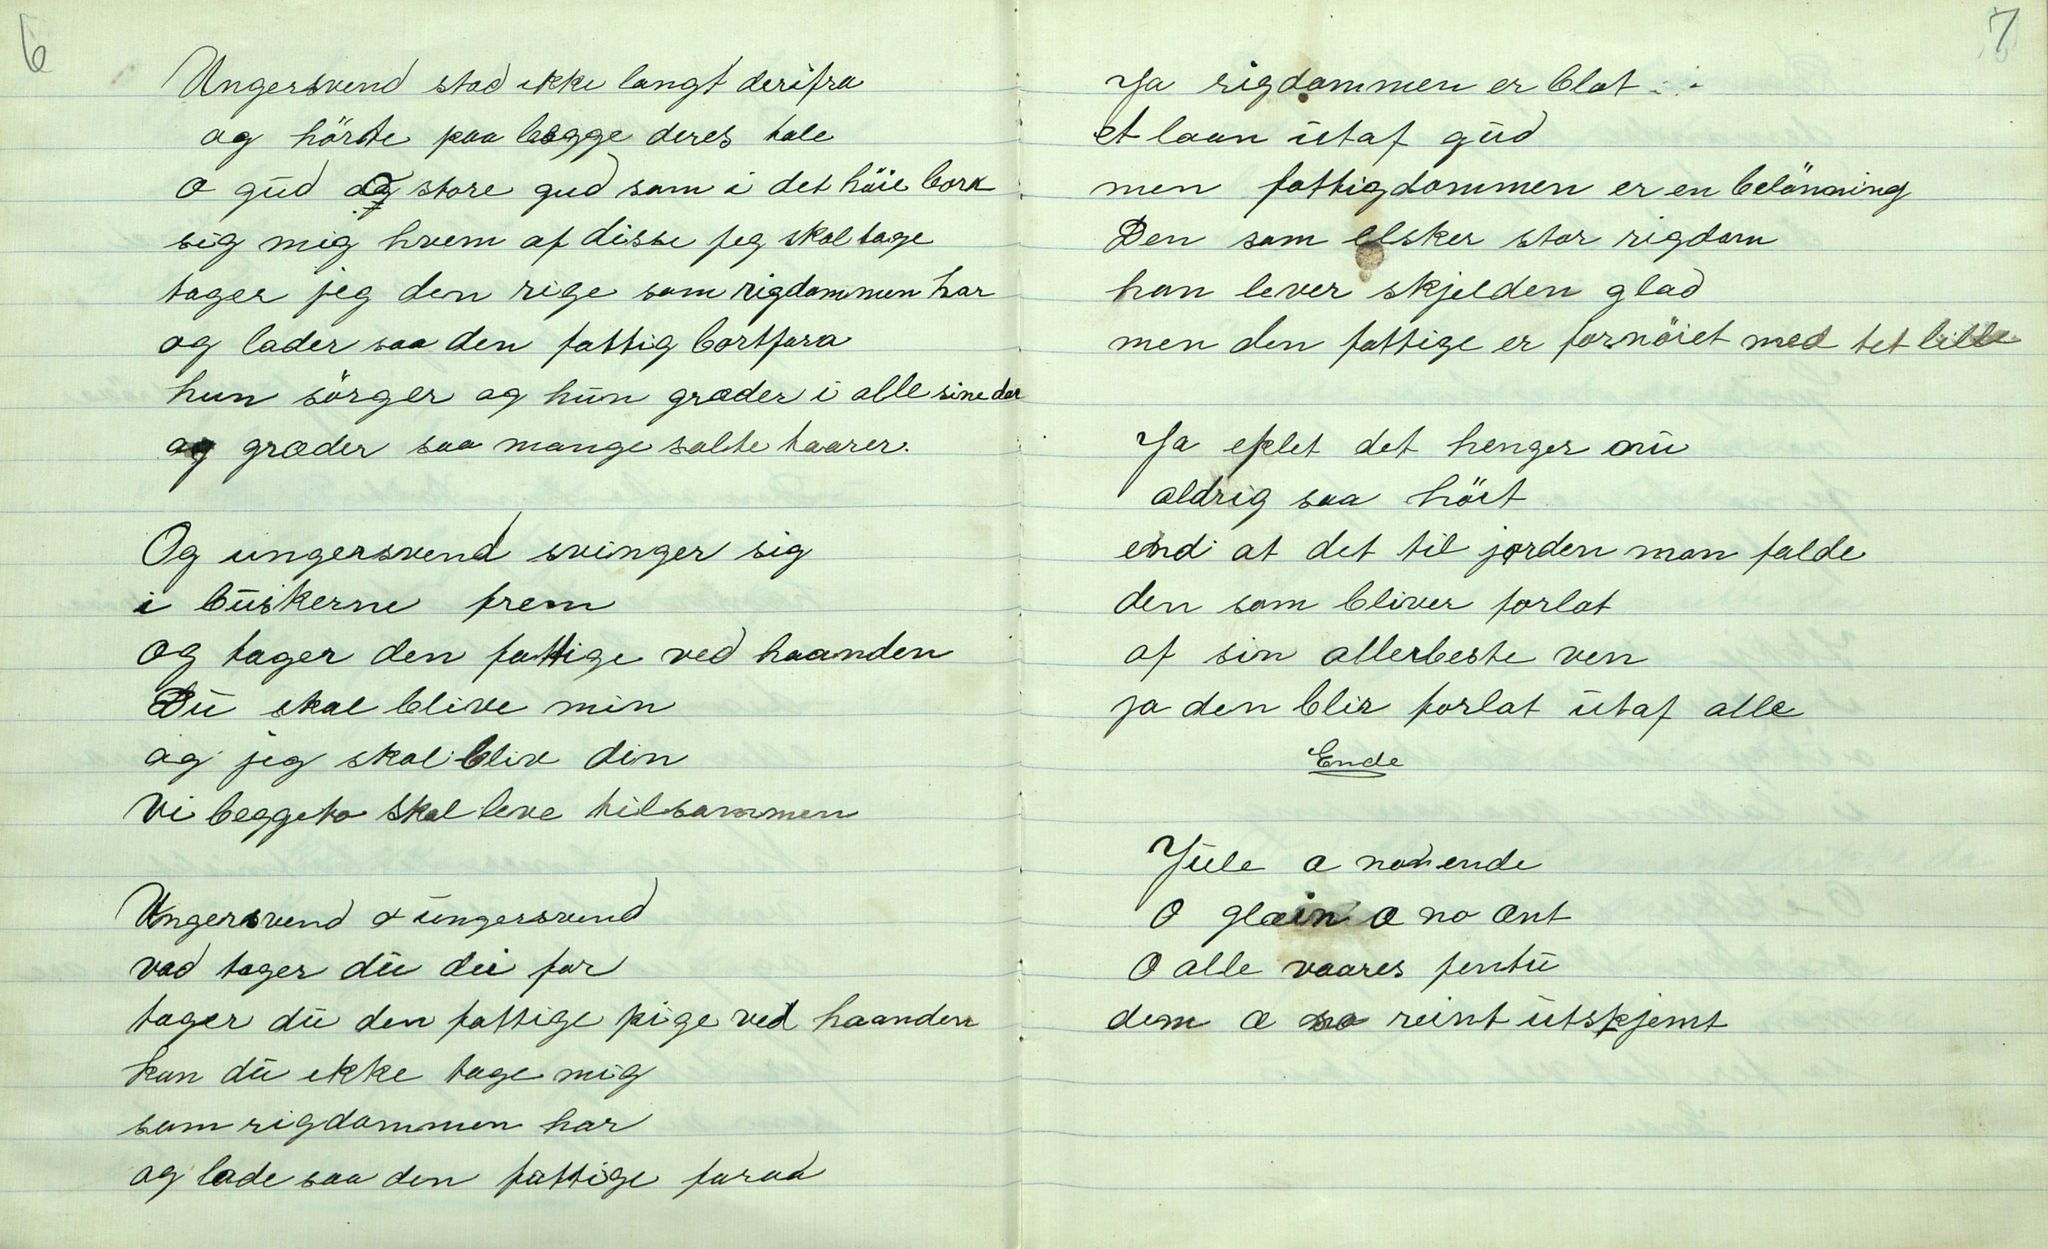 6
Ungersvend stod ikke langt derifra
og hörte paa begge deres tale
o gud og store gud som i det höie bor
sig mig hvem af disse jeg skal tage
tager jeg den rige som rigdommen har
og lader saa den fattig bortfara
hun sörger og hun græder i alle sine dar
og græder saa mange salte taarer.
Og ungersvend svinger sig
i buskerne frem
og tager den fattige ved haanden
Du skal blive min
og jeg skal bliv din
vi beggeto skal leve tilsammen
Ungersvend o ungersvend
vad tager du dei for
tager du den fattige pige ved haanden
kan du ikke tage mig
som rigdommen har
og lade saa den fattige
7
Ja rigdommen er blot
et laan utaf gud
men fattigdommen er en belönning
Den som elsker stor rigdom
han lever skjelden glad
men den fattige er fornöiet med tet lille
Ja eplet det henger nu
aldrig saa höit
end at det til jorden man falde
den som bliver forlat
af sin allerbeste ven
ja den blir forlat utaf alle
Ende
Jule æ no ende
O glæin æ no ænt
O alle vaares fentu
dem æ no reint utskjemt